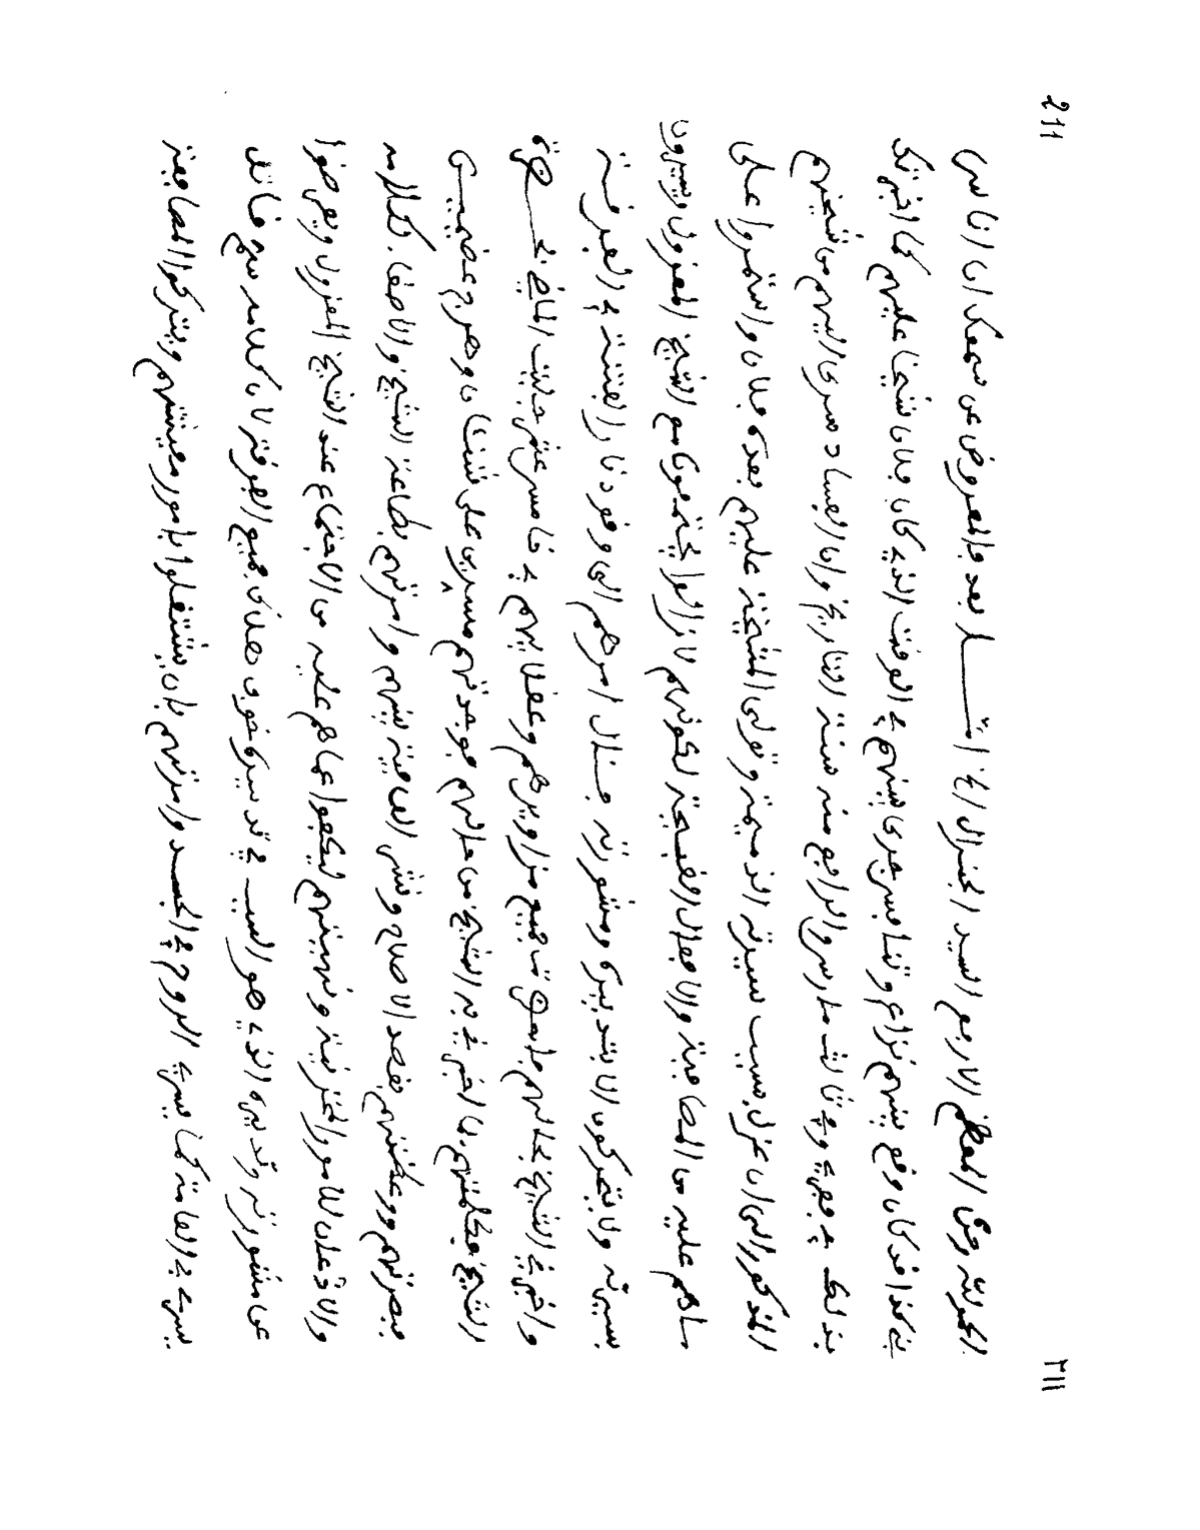 211 ٢١١
الحمد لله وحده المعظم الارفع السيد الجنرال الخ امـــا بعد فالمعروض عن سمعك ان اناس
بني كذا قد كان وقع بينهم نزاع وفتنا فيمن جرى بينهم في الوقت الذي كان فلان شيخا عليهم كما اخبرتك
بذلك في وفي ثالث مارس والرابع منه سنة التاريخ وان الفساد سرى اليهم من شيخهم
المذكور الى ان عزل بسبب سيرته الذميمة وتولى المشيخة عليهم بعده فلان واستمروا على
ما هم عليه من المصافبة والافعال القبيحة لكونهم لا زالوا يجتمعون مع الشيخ المعزول ويسيرون
بسيرته ولا يتحركون الا بتدبيره ومشورته فـــال امرهم الى وقود نار الفتنة في الفرقة
واخبرني الشيخ بحالهم فاحضرت جميع مزاويرهم وعقلايهم في خامس عشر جليت الماضي بحـــضرة
الشيخ فكلمتهم بما اخبرني به الشيخ من حالهم فوجدتهم مسرين على شنئان وهرج عضيمـــين
فبصرتهم ووعظتهم بقصد الاصلاح ونشر العافية بينهم وامرتهم بطاعة الشيخ والاصغاء لكلامه
والاذعان للامور المخزنية ونهيتهم ليكفوا عما هم عليه من الاجتماع عند الشيخ المعزول ويعرضوا
عن مشورته وتدبيره الذي هو السبب في تدمير كم خوبى هلاك جميع الفرقة لان كلامه سم قاتل
يسري في العامة كما يسري الروح في الجسد وامرتهم بان يشتغلوا بامور معيشتهم ويتركوا المصافبة